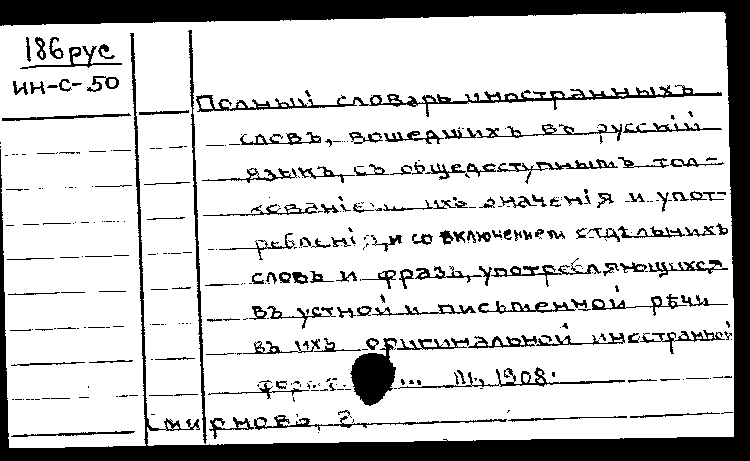 186 рус
ин-с-50
Полный словарь иностранныхъ
словъ, вошедшихъ въ русскій
языкъ, съ общедоступнымъ тол-
кованіем ихъ значенія и упот-
ребленія, и со включением отдѣльныхъ
словъ и фразъ, употребляющихся
въ устной и письменной рѣчи
въ ихъ оригинальной иностранной
... М., 1908.
Смирновъ,